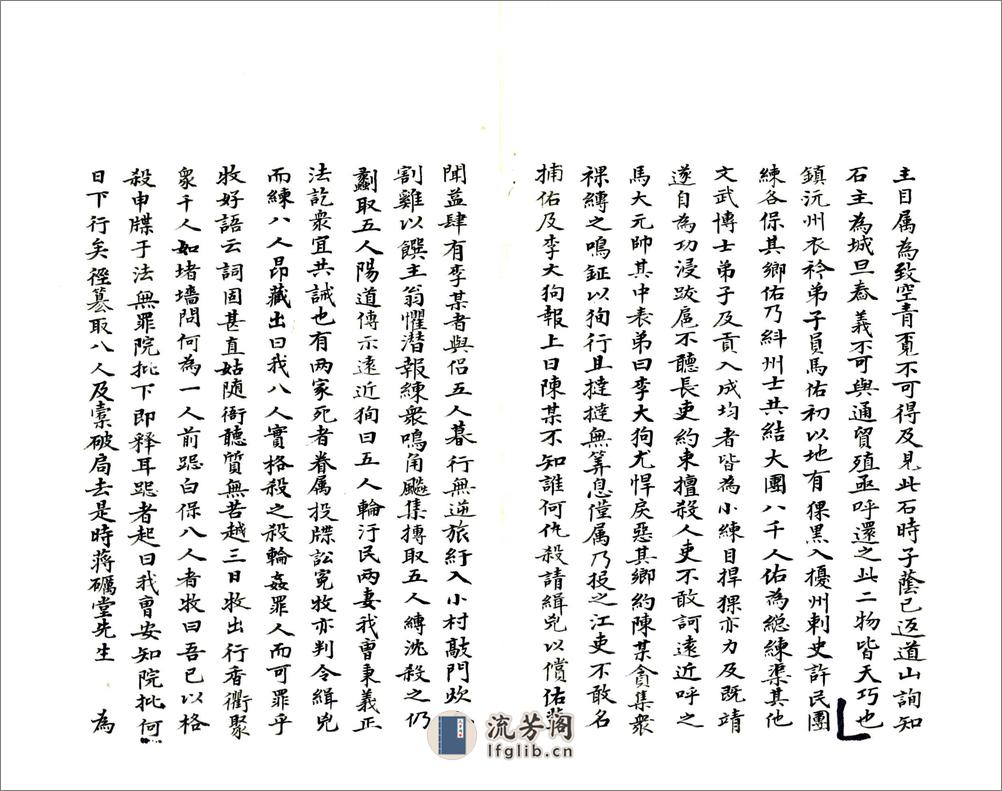 主目属為致空青覔不可得及見此石時子蔭已返道山詢知
石主為城旦舂義不可與通貿殖亟呼還之此二物皆天巧也
鎮沅州衣衿弟子員馬佑初以地有猓黑入擾州刺史許民團
練各保其鄉佑乃糾州士共結大團八千人佑為總練渠其他
文武博士弟子及貢入成均者皆為小練目捍猓亦力及既靖
遂自為功浸跋扈不聽長吏約束擅殺人吏不敢訶遠近呼之
馬大元帥其中表弟曰李大狗尤悍戾惡其鄉約陳某貪集衆
裸縛之鳴鉦以狥行且撻撻無筭息僅属乃投之江吏不敢名
捕佑及李大狗報上曰陳某不知誰何仇殺請緝兇以償佑
聞益肆有李某者與侣五人暮行無逆旅紆入小村敲門炊
割雞以饌主翁懼潜報練衆鳴角飈集搏取五人縛沈殺之仍
劙取五人陽道傳示遠近狥曰五人輪汙民兩妻我曹秉義正
法訖衆宜共誡也有兩家死者眷属投牒訟寃牧亦判令緝兇
而練八人昂藏出曰我八人實格殺之殺輪姦罪人而可罪乎
牧好語云詞固甚直姑随衙聽質無苦越三日牧出行香衢聚
衆千人如堵墻問何為一人前跽白保八人者牧曰吾已以格
殺申牒于法無罪院批下即释耳跽者起曰我曹安知院批何
日下行矣徑篡取八人及橐破局去是時蔣礪堂先生 為
流芳阁
lfglib.cn